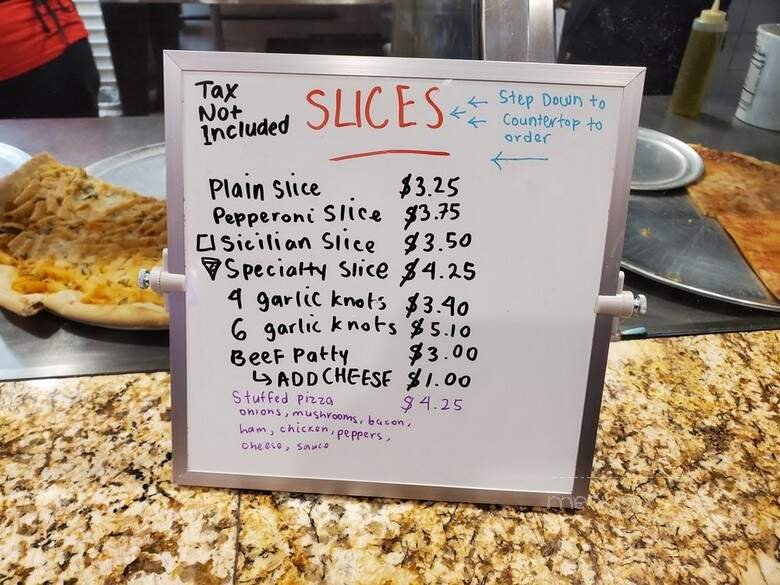 Tax
Not
Included
SLICES
← Step Down to
← Countertop to
← order
←
Plain Slice $3.25
Pepperoni Slice $3.75
Sicilian Slice $3.50
Specialty Slice $4.25
4 garlic knots $3.40
6 garlic knots $5.10
Beef Patty $3.00
↳ ADD CHEESE $1.00
Stuffed pizza $4.25
onions, mushrooms, bacon,
ham, chicken, peppers,
cheese, sauce